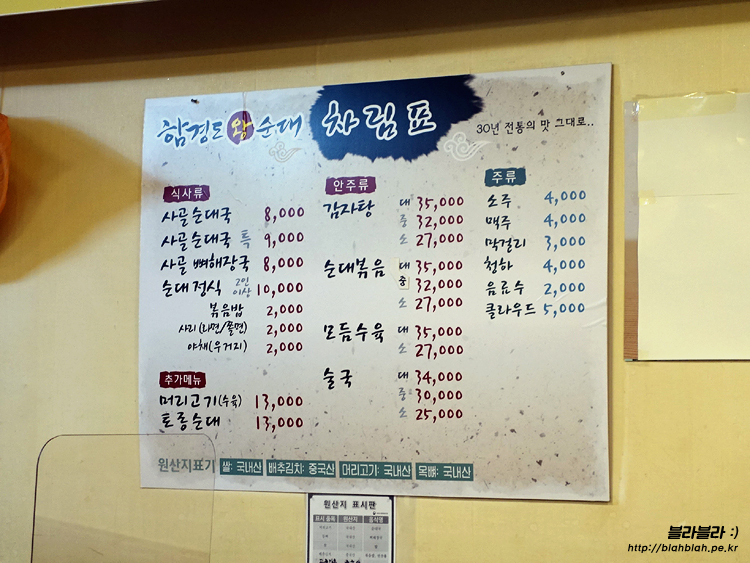 함경도 왕 순대 차림표 30년 전통의 맛 그대로..
식사류
사골순대국 8,000
사골순대국 특 9,000
사골 뼈해장국 8,000
순대정식 2인 이상 10,000
볶음밥 2,000
사리(라면/쫄면) 2,000
야채(우거지) 2,000
추가메뉴
머리고기(수육) 13,000
토종순대 13,000
안주류
감자탕 대 35,000
중 32,000
소 27,000
순대볶음 대 35,000
중 32,000
소 27,000
모듬수육 대 35,000
소 27,000
술국 대 34,000
중 30,000
소 25,000
주류
소주 4,000
맥주 4,000
막걸리 3,000
청하 4,000
음료수 2,000
클라우드 5,000
원산지표기 쌀: 국내산 배추김치: 중국산 머리고기: 국내산 목뼈: 국내산
원산지 표시판
표시 품목 원산지 음식명
블라블라 :)
http://blahblah.pe.kr